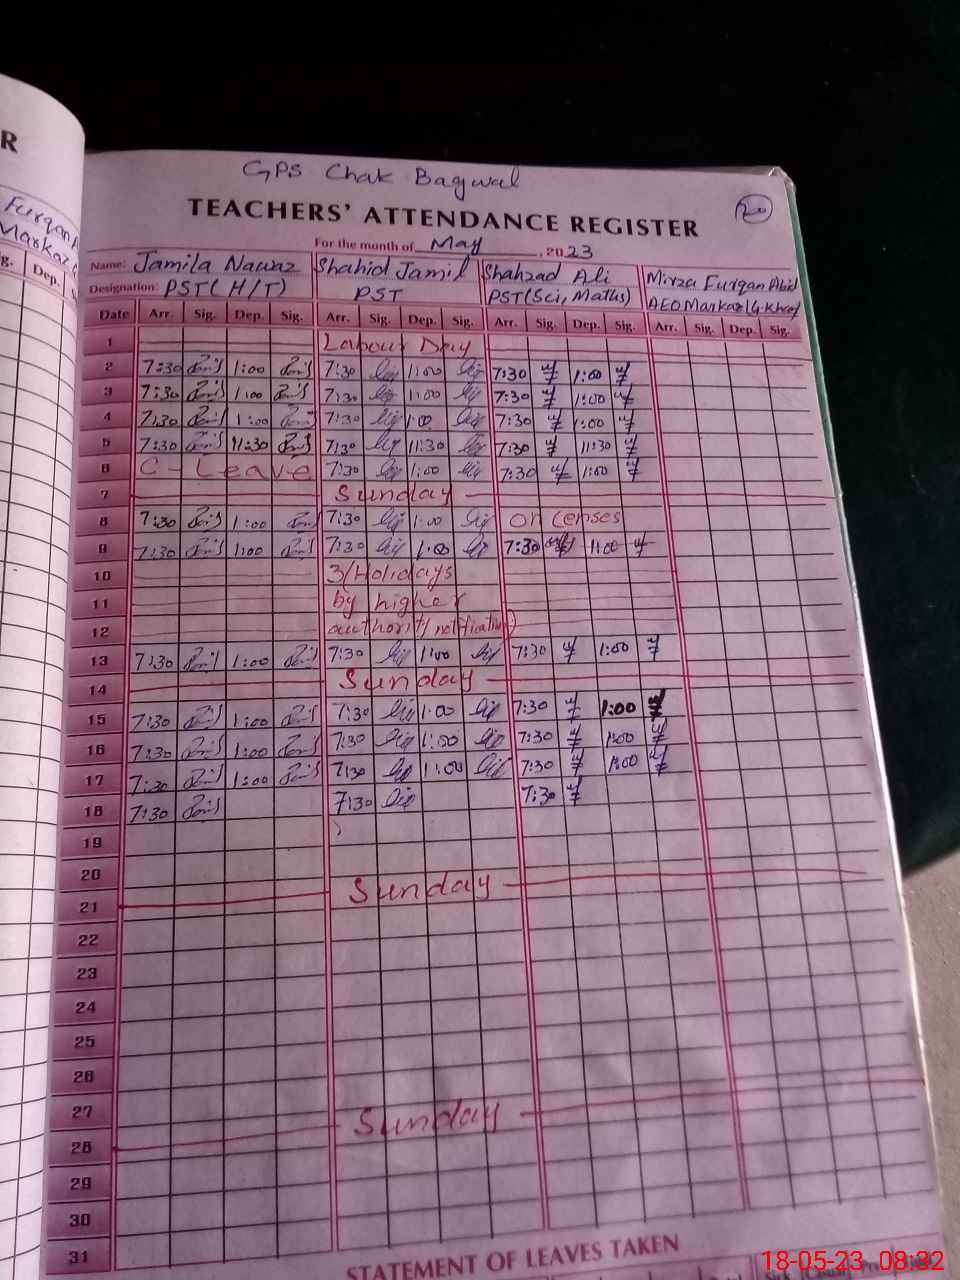 R
GPS Chak Bagwal
20
TEACHERS' ATTENDANCE REGISTER
For the month of May, 2023
Name: Jamila Nawaz Shahid Jamil Shahzad Ali Mirza Furqan Abid
Designation: PST(H/T) PST PST(Sci, Maths) AEO Markaz
Date Arr. Sig. Dep. Sig. Arr. Sig. Dep. Sig. Arr. Sig. Dep. Sig. Arr. Sig. Dep. Sig.
1 Labour Day
2 7:30 1:00 7:30 1:00 7:30 1:00
3 7:30 1:00 7:30 1:00 7:30 1:00
4 7:30 1:00 7:30 1:00 7:30 1:00
5 7:30 11:30 7:30 11:30 7:30 11:30
6 C-Leave 7:30 1:00 7:30 1:00
7 Sunday
8 7:30 1:00 7:30 1:00 on Censes
9 7:30 1:00 7:30 1:00 7:30 1:00
10 3/Holidays
11 by higher
12 authority notification
13 7:30 1:00 7:30 1:00 7:30 1:00
14 Sunday
15 7:30 1:00 7:30 1:00 7:30 1:00
16 7:30 1:00 7:30 1:00 7:30 1:00
17 7:30 1:00 7:30 1:00 7:30 1:00
18 7:30 7:30 7:30
19
20
21 Sunday
22
23
24
25
26
27
28 Sunday
29
30
31
STATEMENT OF LEAVES TAKEN
18-05-23 08:32